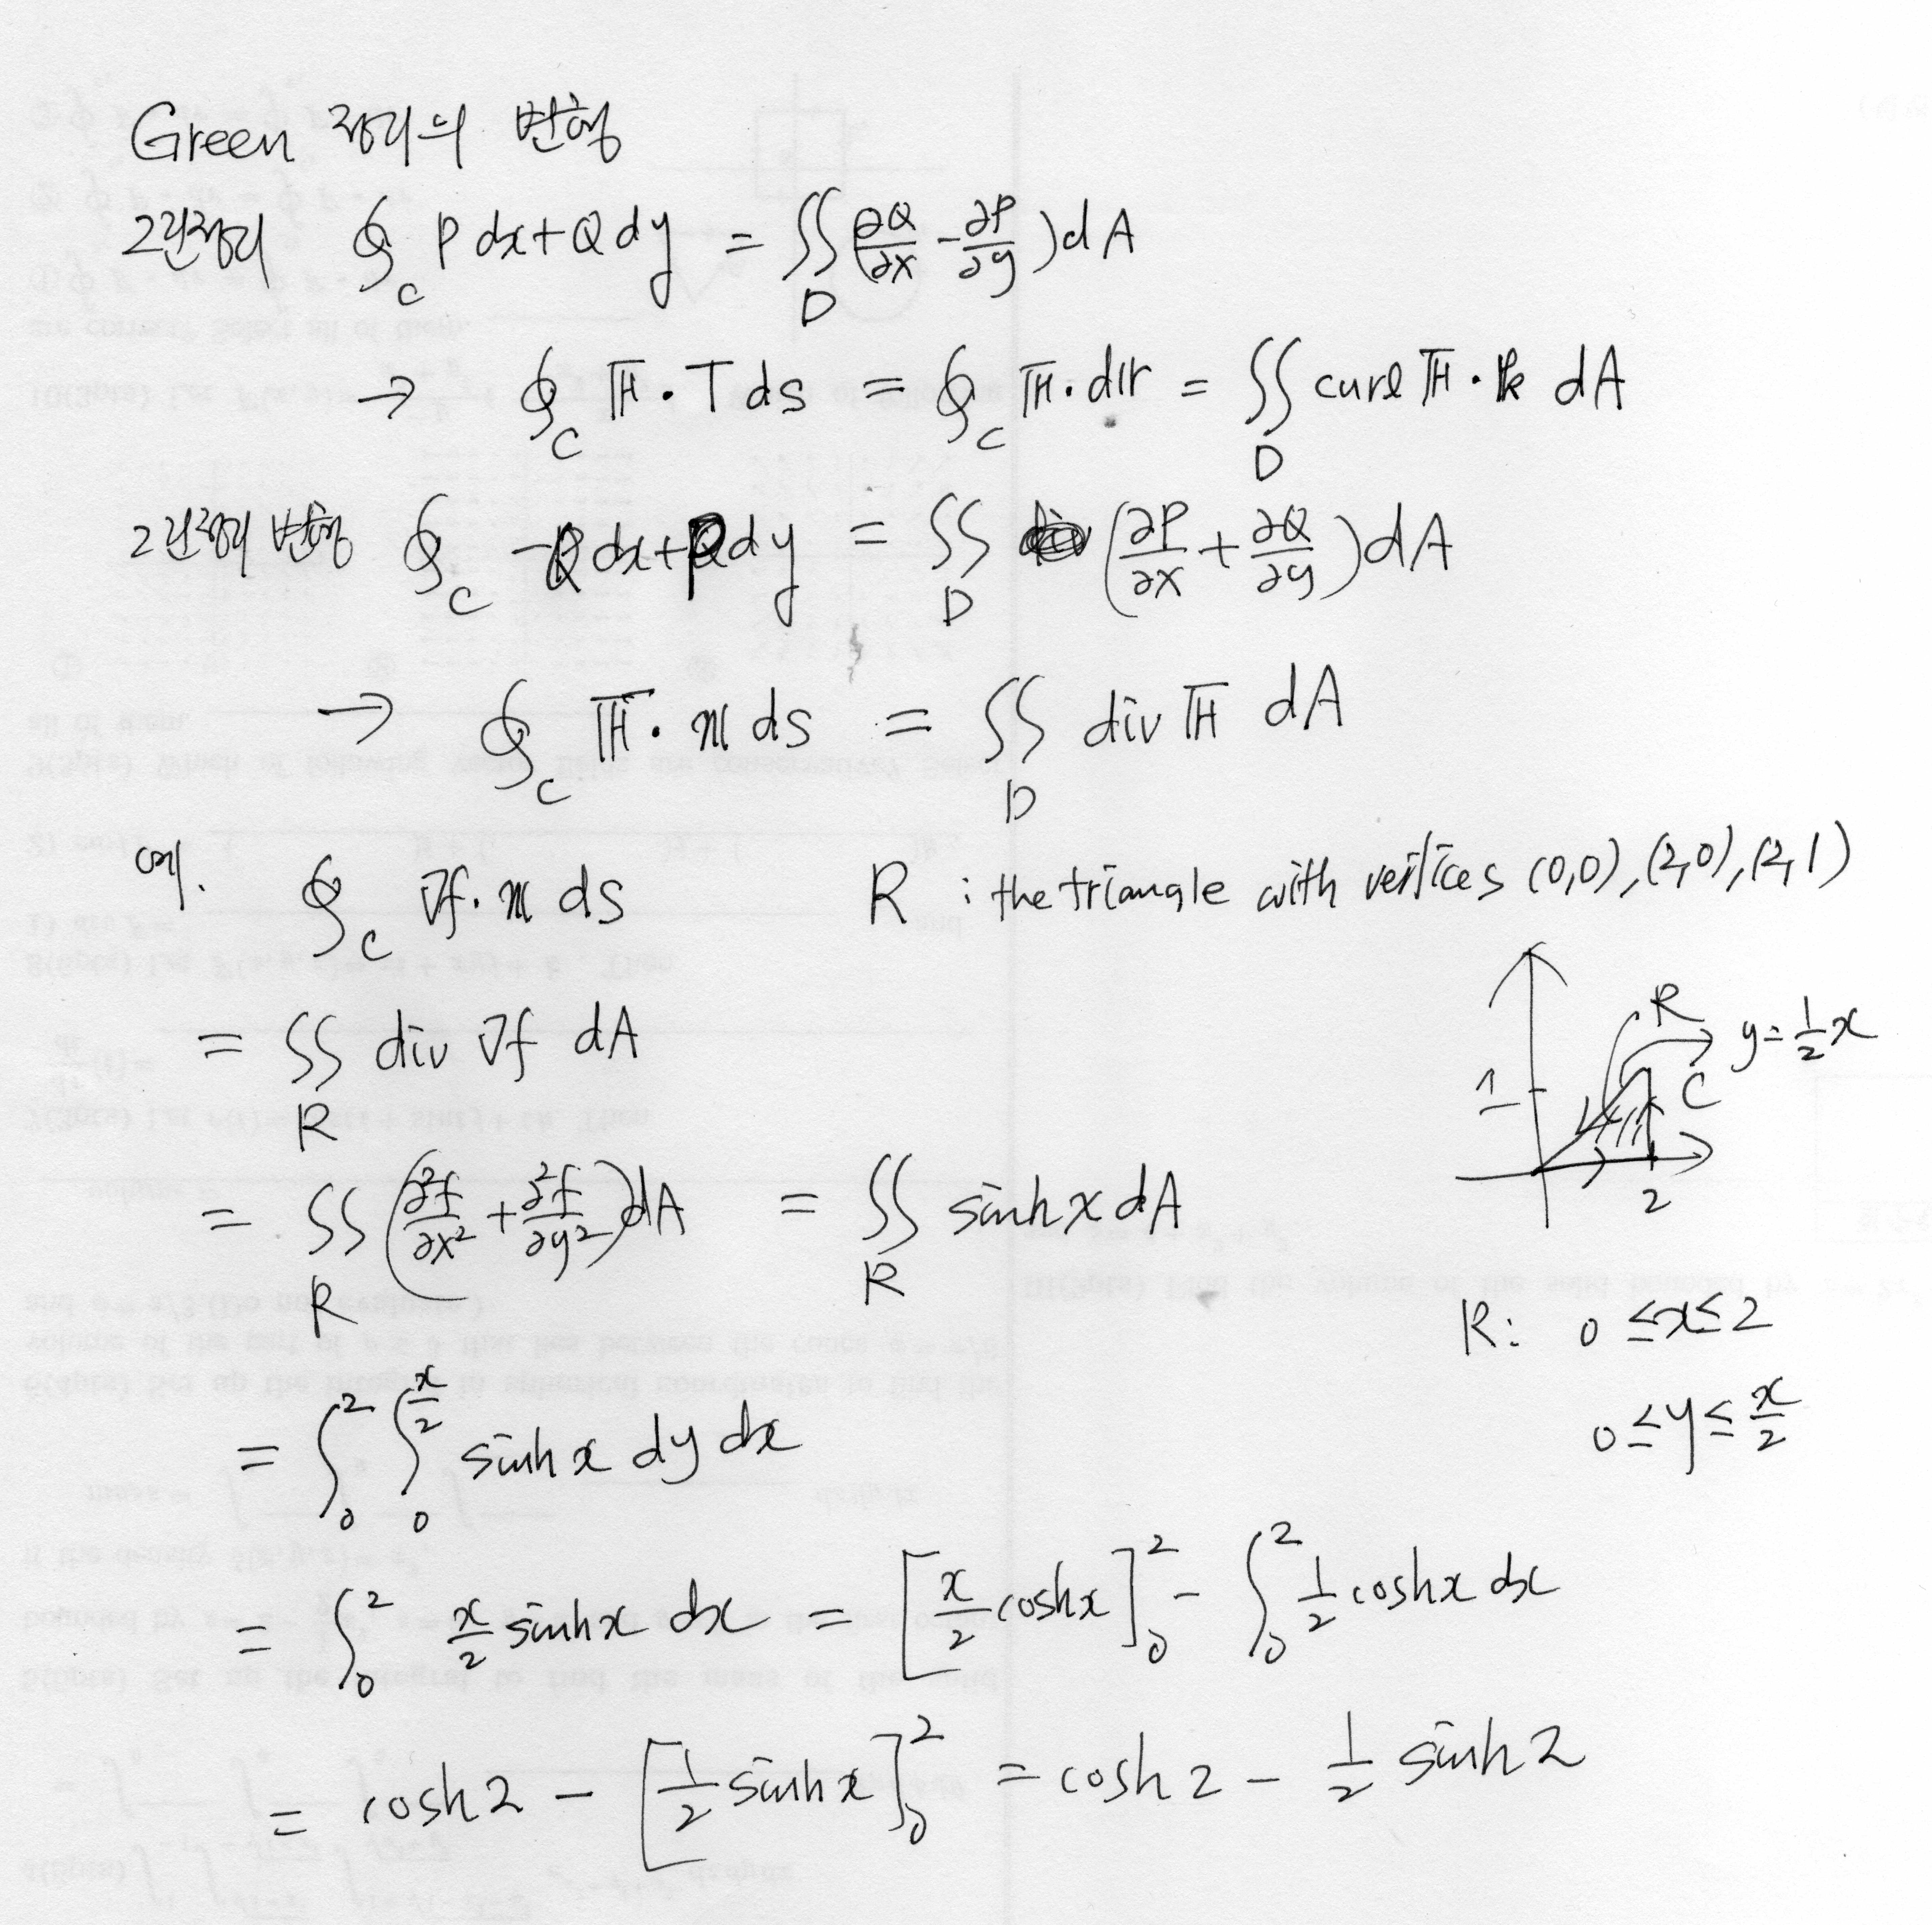 Green 정리의 변형
그린정리 ∮_C P dx + Q dy = ∬_D (∂Q/∂x - ∂P/∂y) dA
→ ∮_C F · T ds = ∮_C F · dr = ∬_D curl F · k dA
그린정리 변형 ∮_C -Q dx + P dy = ∬_D (∂P/∂x + ∂Q/∂y) dA
→ ∮_C F · n ds = ∬_D div F dA
∮_C ∇f · n ds R : the triangle with vertices (0,0), (2,0), (2,1)
= ∬_R div ∇f dA
R
y = 1/2 x
1
C
2
= ∬_R (∂²f/∂x² + ∂²f/∂y²) dA = ∬_R sinh x dA
R: 0 ≤ x ≤ 2
0 ≤ y ≤ x/2
= ∫_0^2 ∫_0^{x/2} sinh x dy dx
= ∫_0^2 x/2 sinh x dx = [x/2 cosh x]_0^2 - ∫_0^2 1/2 cosh x dx
= cosh 2 - [1/2 sinh x]_0^2 = cosh 2 - 1/2 sinh 2